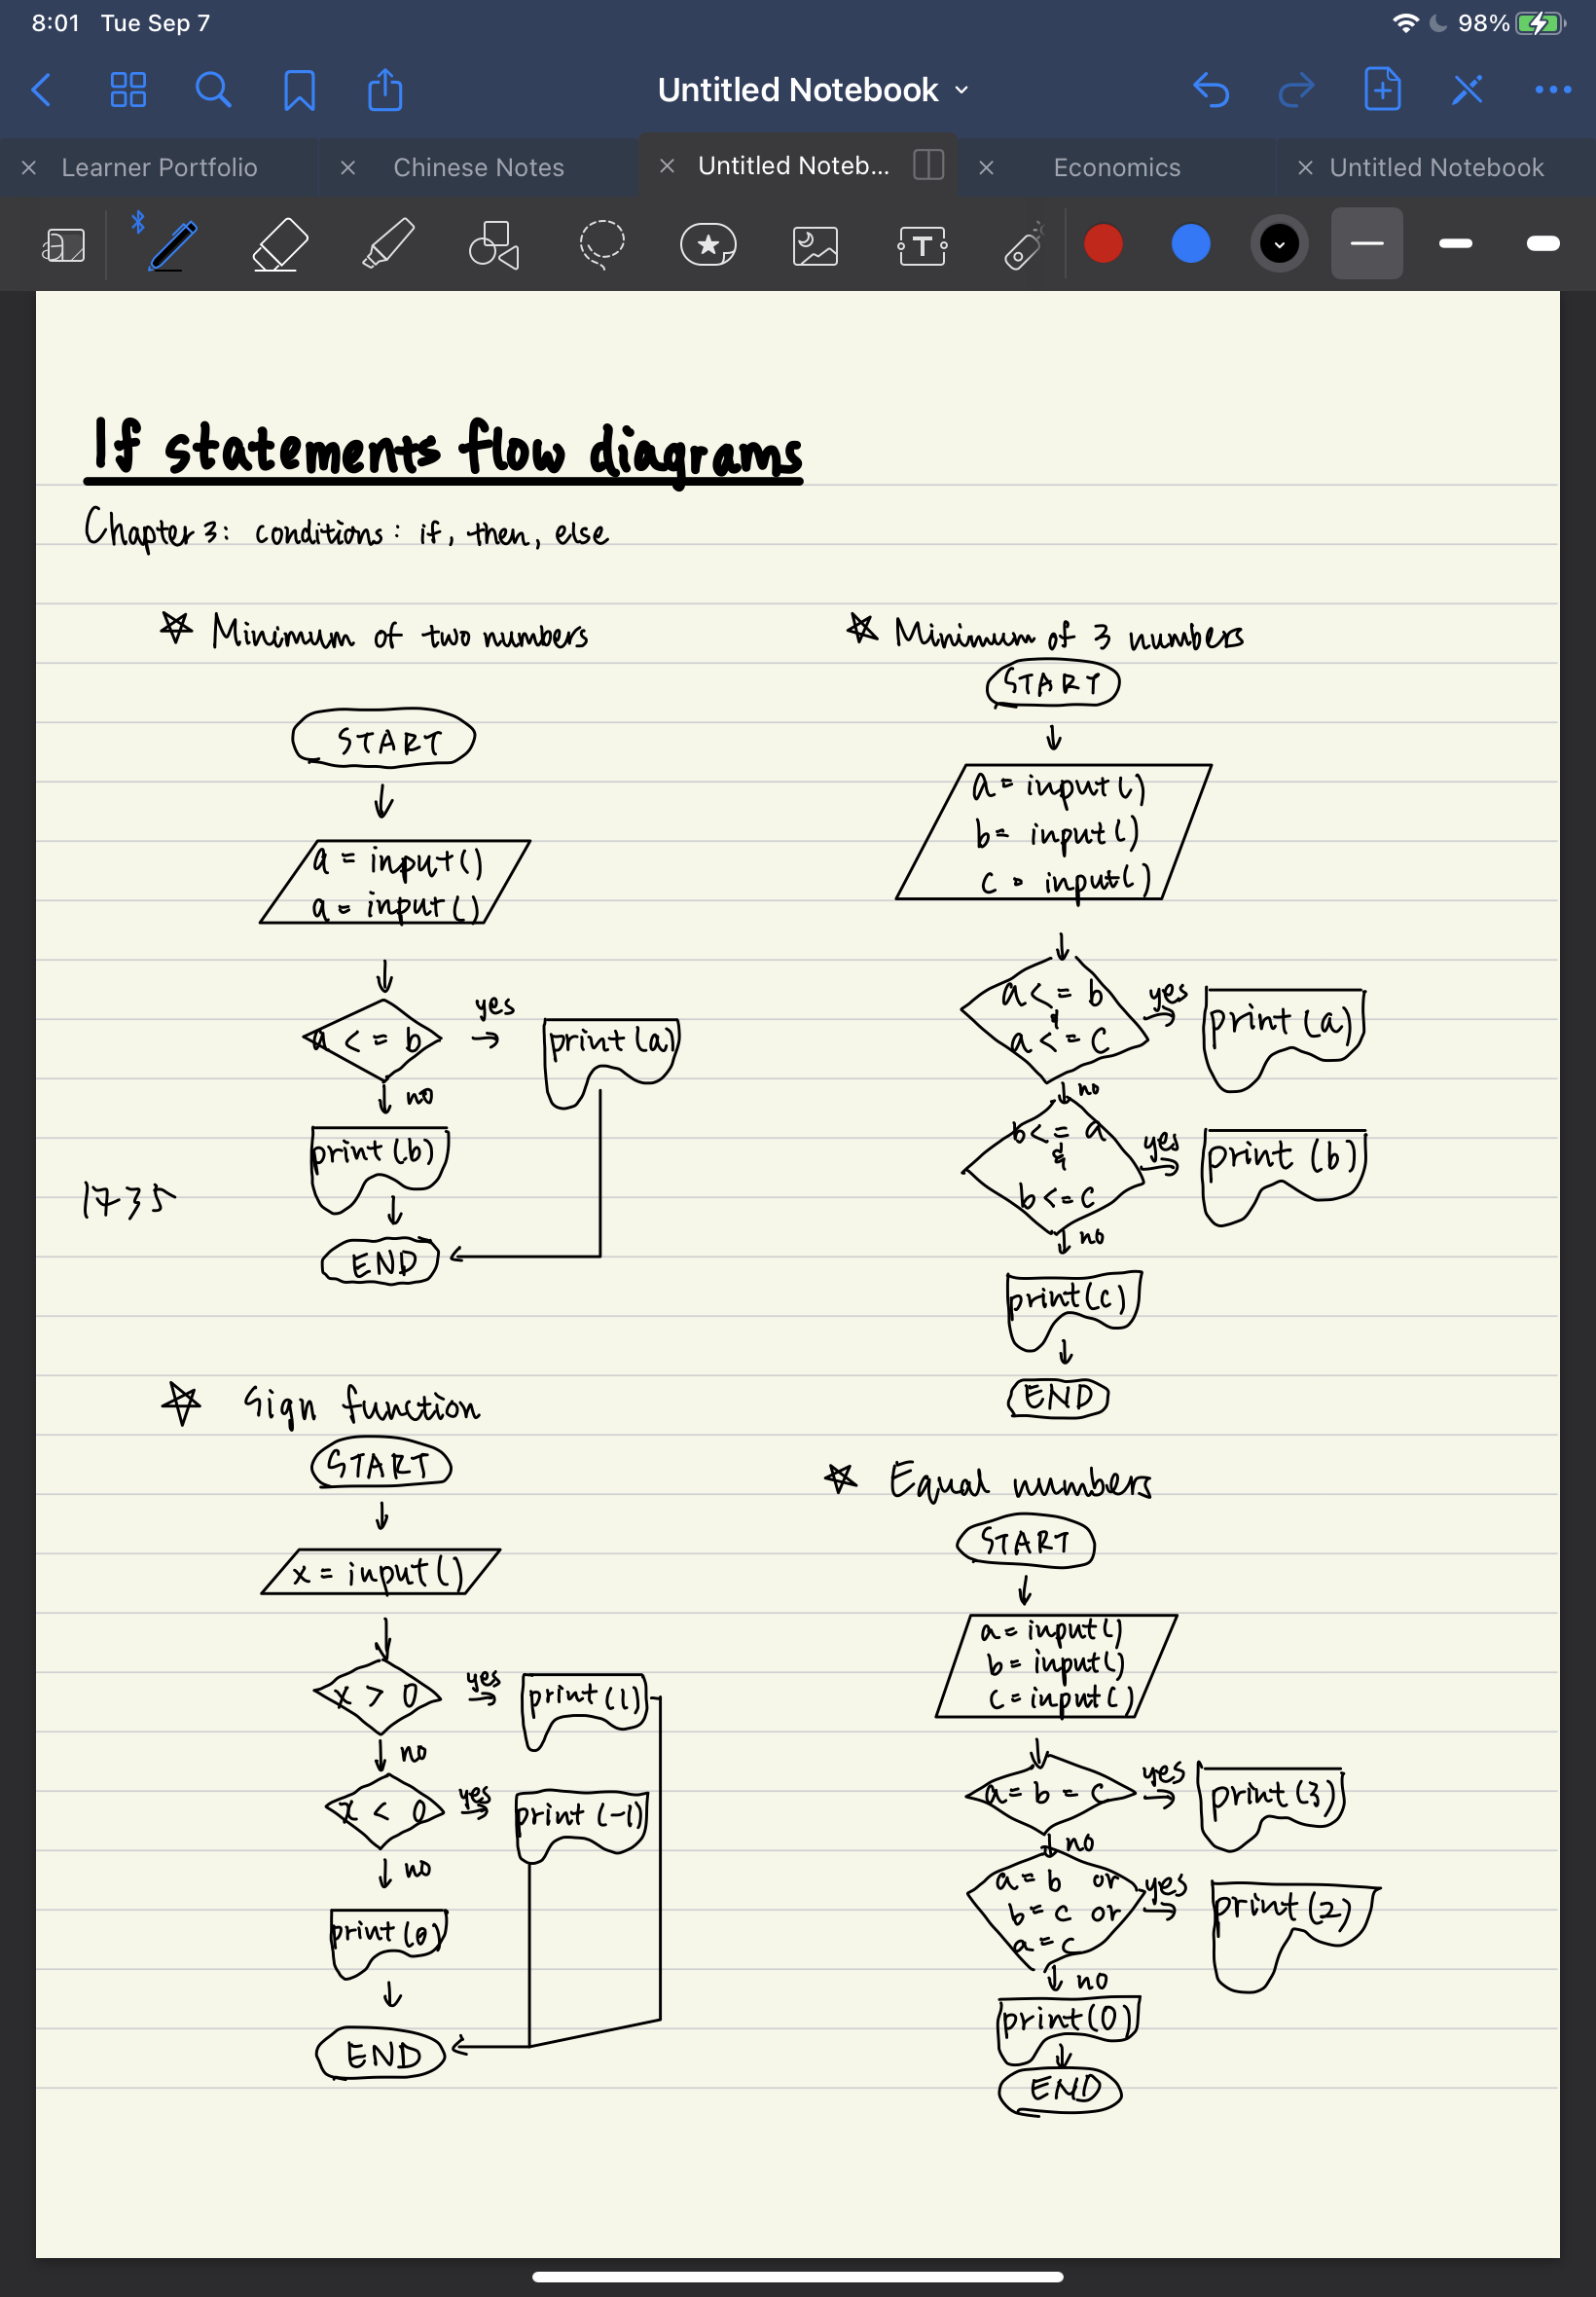 8:01 Tue Sep 7
98%
Untitled Notebook
Learner Portfolio
Chinese Notes
Untitled Noteb...
Economics
Untitled Notebook
a
T
If statements flow diagrams
Chapter 3: conditions: if, then, else
Minimum of two numbers
START
a = input()
a = input()
a <= b
yes
print(a)
no
print(b)
1735
END
Minimum of 3 numbers
START
a = input()
b = input()
c = input()
a <= b
&
a <= c
yes
print(a)
no
b <= a
&
b <= c
yes
print(b)
no
print(c)
END
Sign function
START
x = input()
x > 0
yes
print(1)
no
x < 0
yes
print(-1)
no
print(0)
END
Equal numbers
START
a = input()
b = input()
c = input()
a = b = c
yes
print(3)
no
a = b or
b = c or
a = c
yes
print(2)
no
print(0)
END